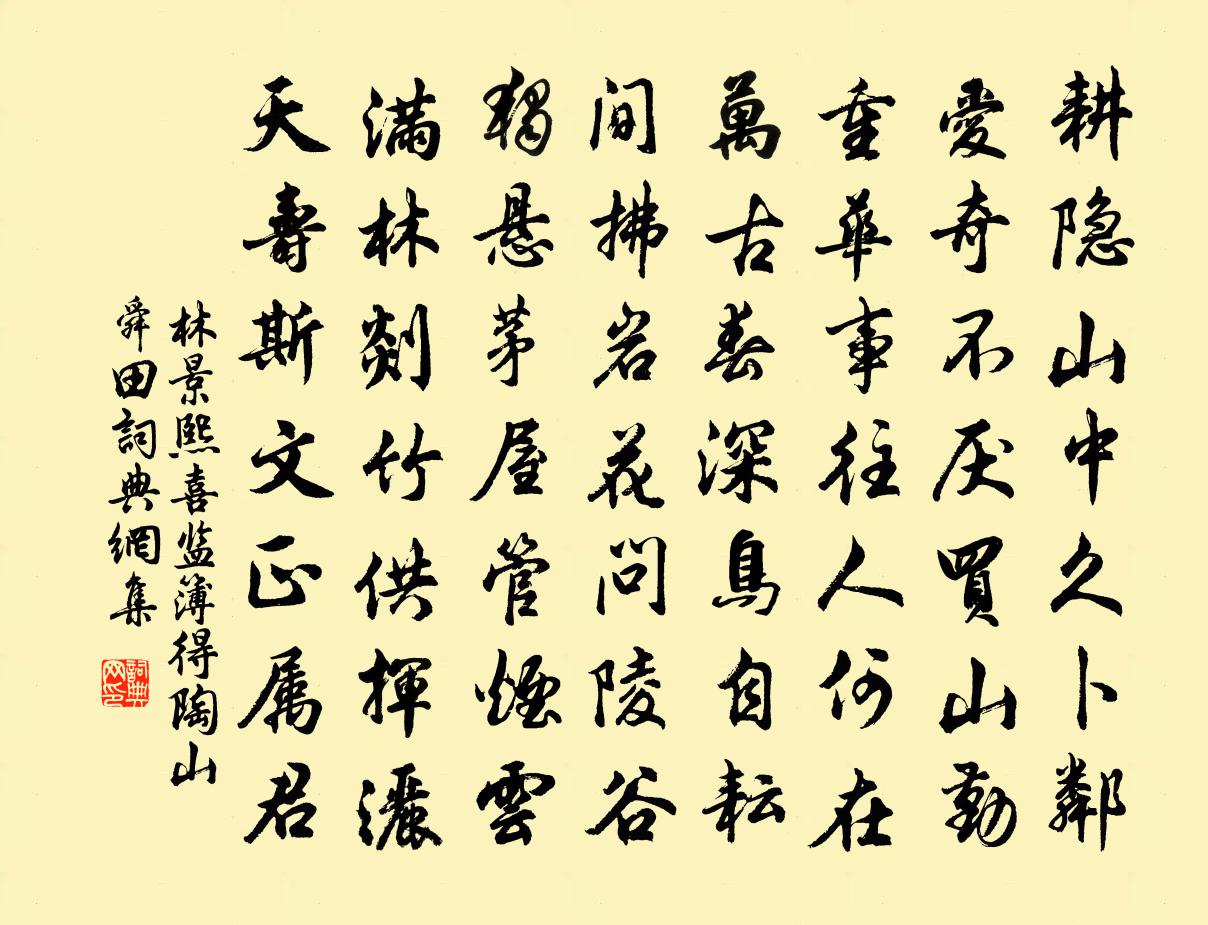 耕隐山中久卜鄰
愛奇不厌買山勤
重華事往人何在
萬古春深鳥自耘
间拂岩花问陵谷
獨悬茅屋管煙雲
满林剡竹供揮灑
天壽斯文正属君
林景熙喜监簿得陶山
舜田詞典網集
詞典网印